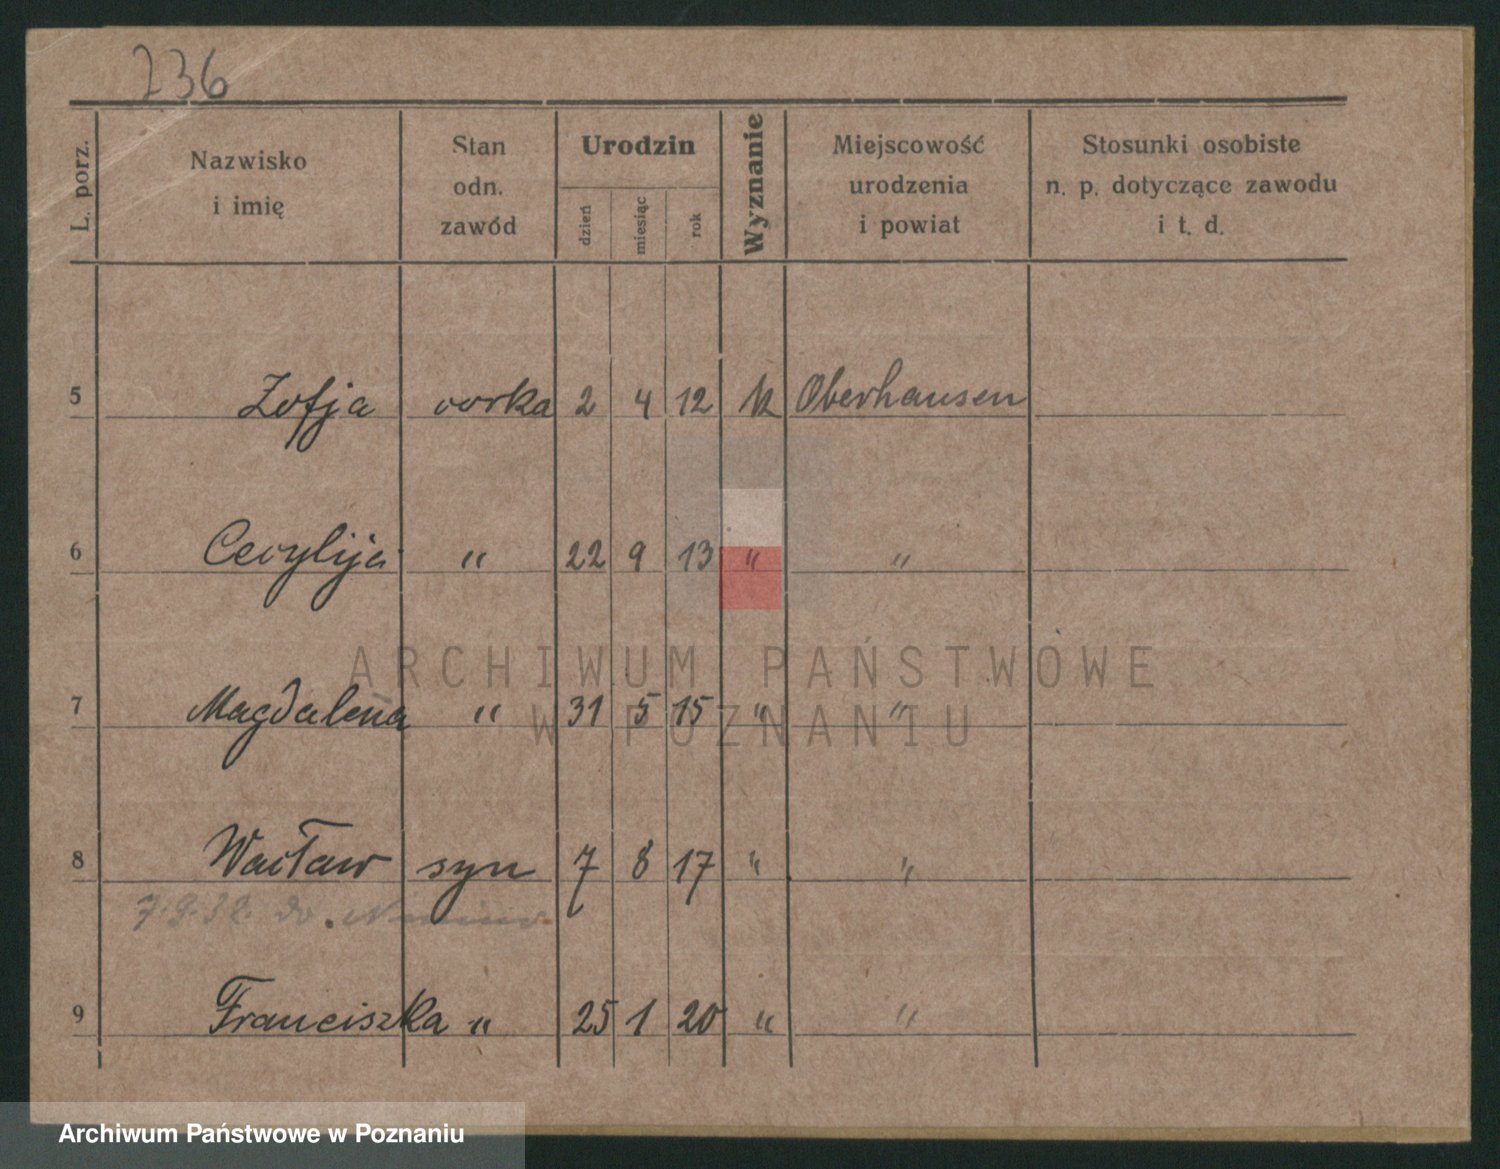 236
L. porz.
Nazwisko
i imię
Stan
odn.
zawód
Urodzin
dzień
miesiąc
rok
Wyznanie
Miejscowość
urodzenia
i powiat
Stosunki osobiste
n. p. dotyczące zawodu
i t. d.
5 Zofja corka 2 4 12 k Oberhausen
6 Cecylija " 22 9 13 " "
7 Magdalena " 31 5 15 " "
8 Wacław syn 7 8 17 " "
7.9.38. do
9 Franciszka " 25 1 20 " "
ARCHIWUM PAŃSTWOWE
W POZNANIU
Archiwum Państwowe w Poznaniu